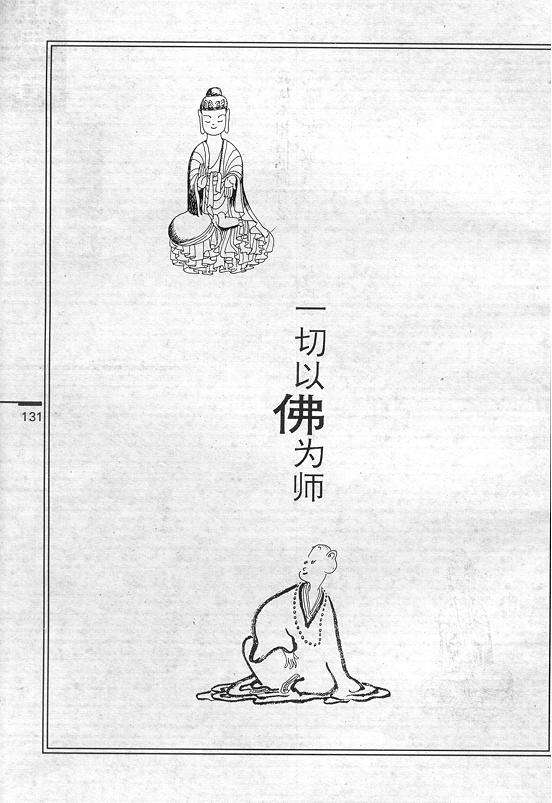 一切以佛为师
131